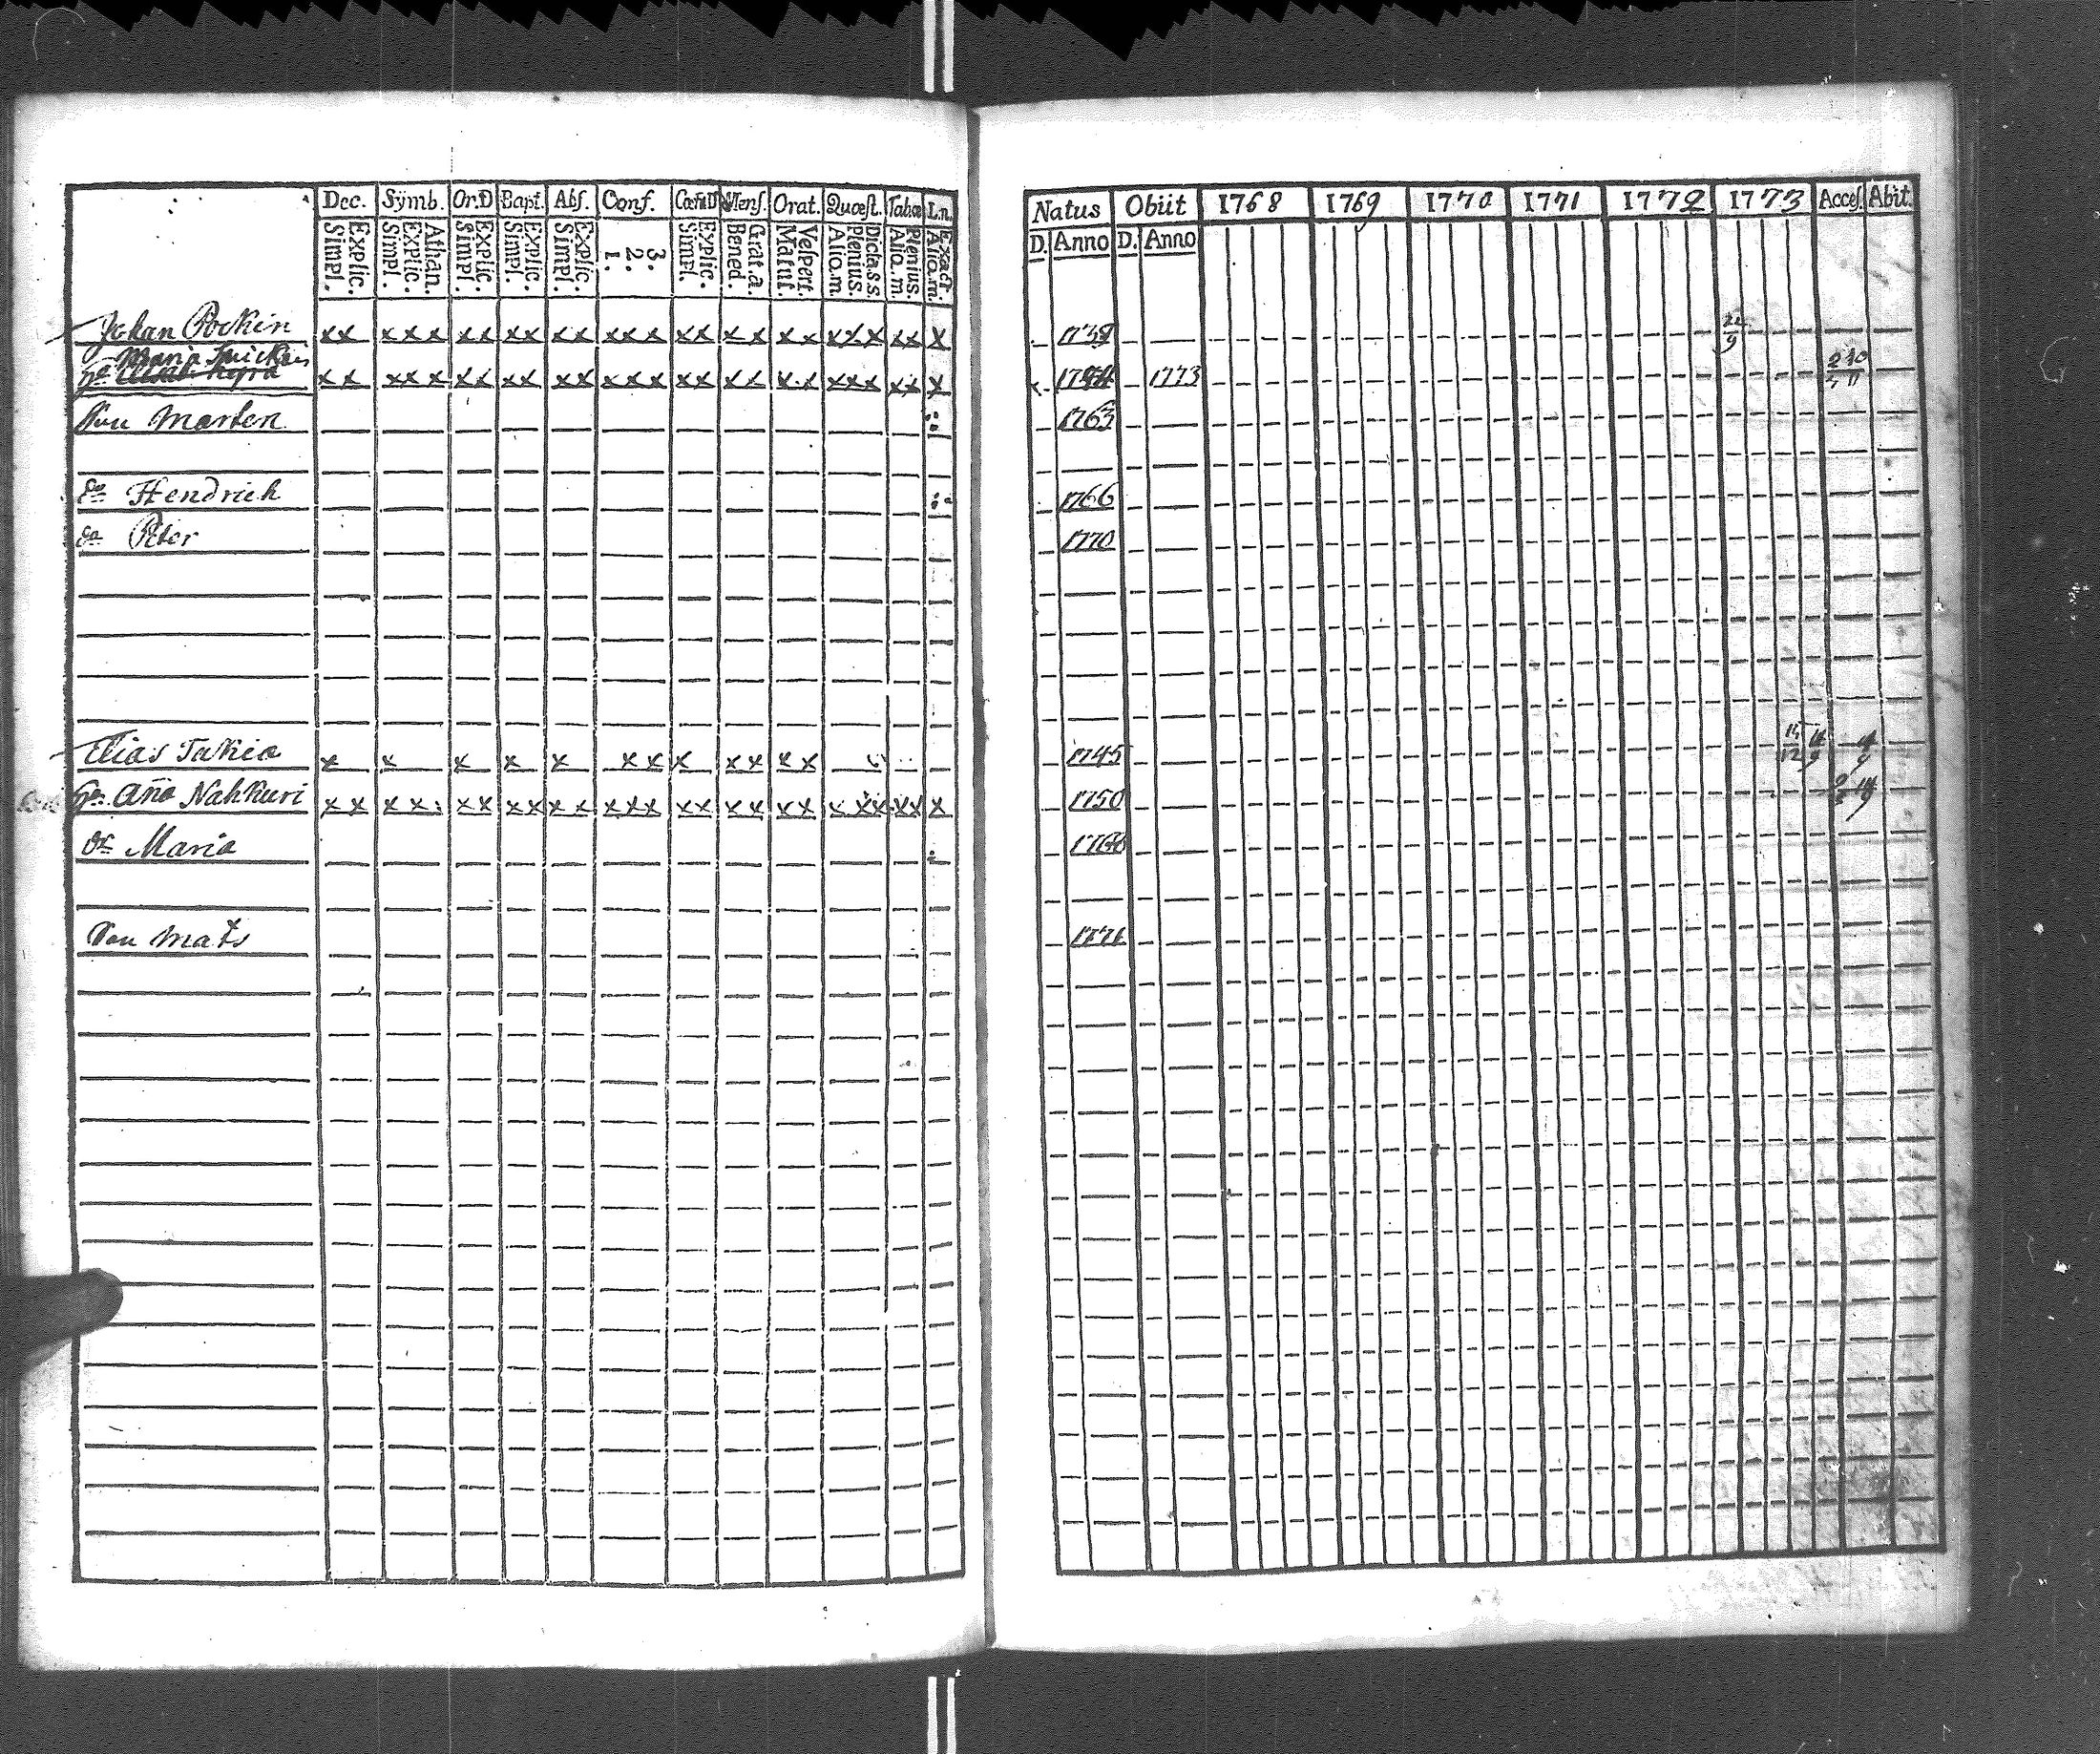 Dec. Sÿmb. Or.D Bapt. Abs. Conf. Cœna D Mens. Orat. Quæst. Tabœ L.n.
Explic. Simpl. Athan. Explic. Simpl. Explic. Simpl. Explic. Simpl. Explic. Simpl. 3. 2. 1. Explic. Simpl. Grat.a. Bened. Velpert. Matut. Dicta.s.s. Plenius. Alio.m. Plenius. Alio.m. Exact. Alio.m.
Johan Pockin xx xxx xx xx xx xxx xx xx xx xxx xx x
Maria
hu xx xxx xx xx xx xxx xx xx xx xxx xx x
Son Marten
do Hendrich
do Peter
Elias Takia x x x x x xx x xx xx
hu Aña Nahkuri xx xx xx xx xx xxx xx xx xx xx xx x
dr Maria
Son Mats
Natus Obiit 1768 1769 1770 1771 1772 1773 Acces. Abit.
D. Anno D. Anno
1739
1773
1763
1766
1770
1745
1750
1771